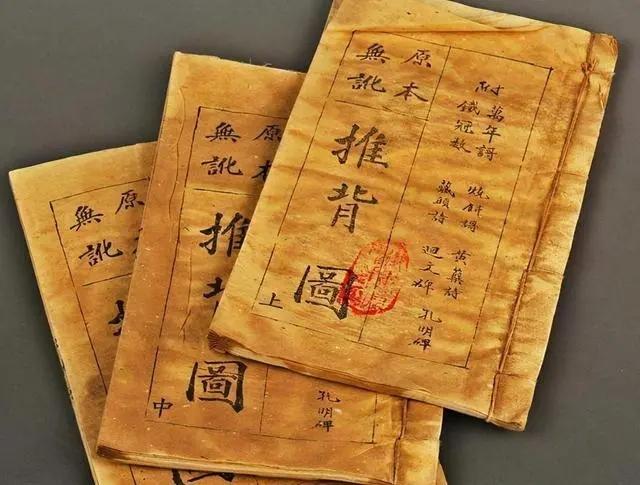 附
萬年譜 燒餅譜 黃蘗詩 孔明碑
鐵冠數 藏頭詩 迴文碑
原本
無訛
推背圖
上
原本
無訛
推背圖
中
孔明碑
原本
無訛